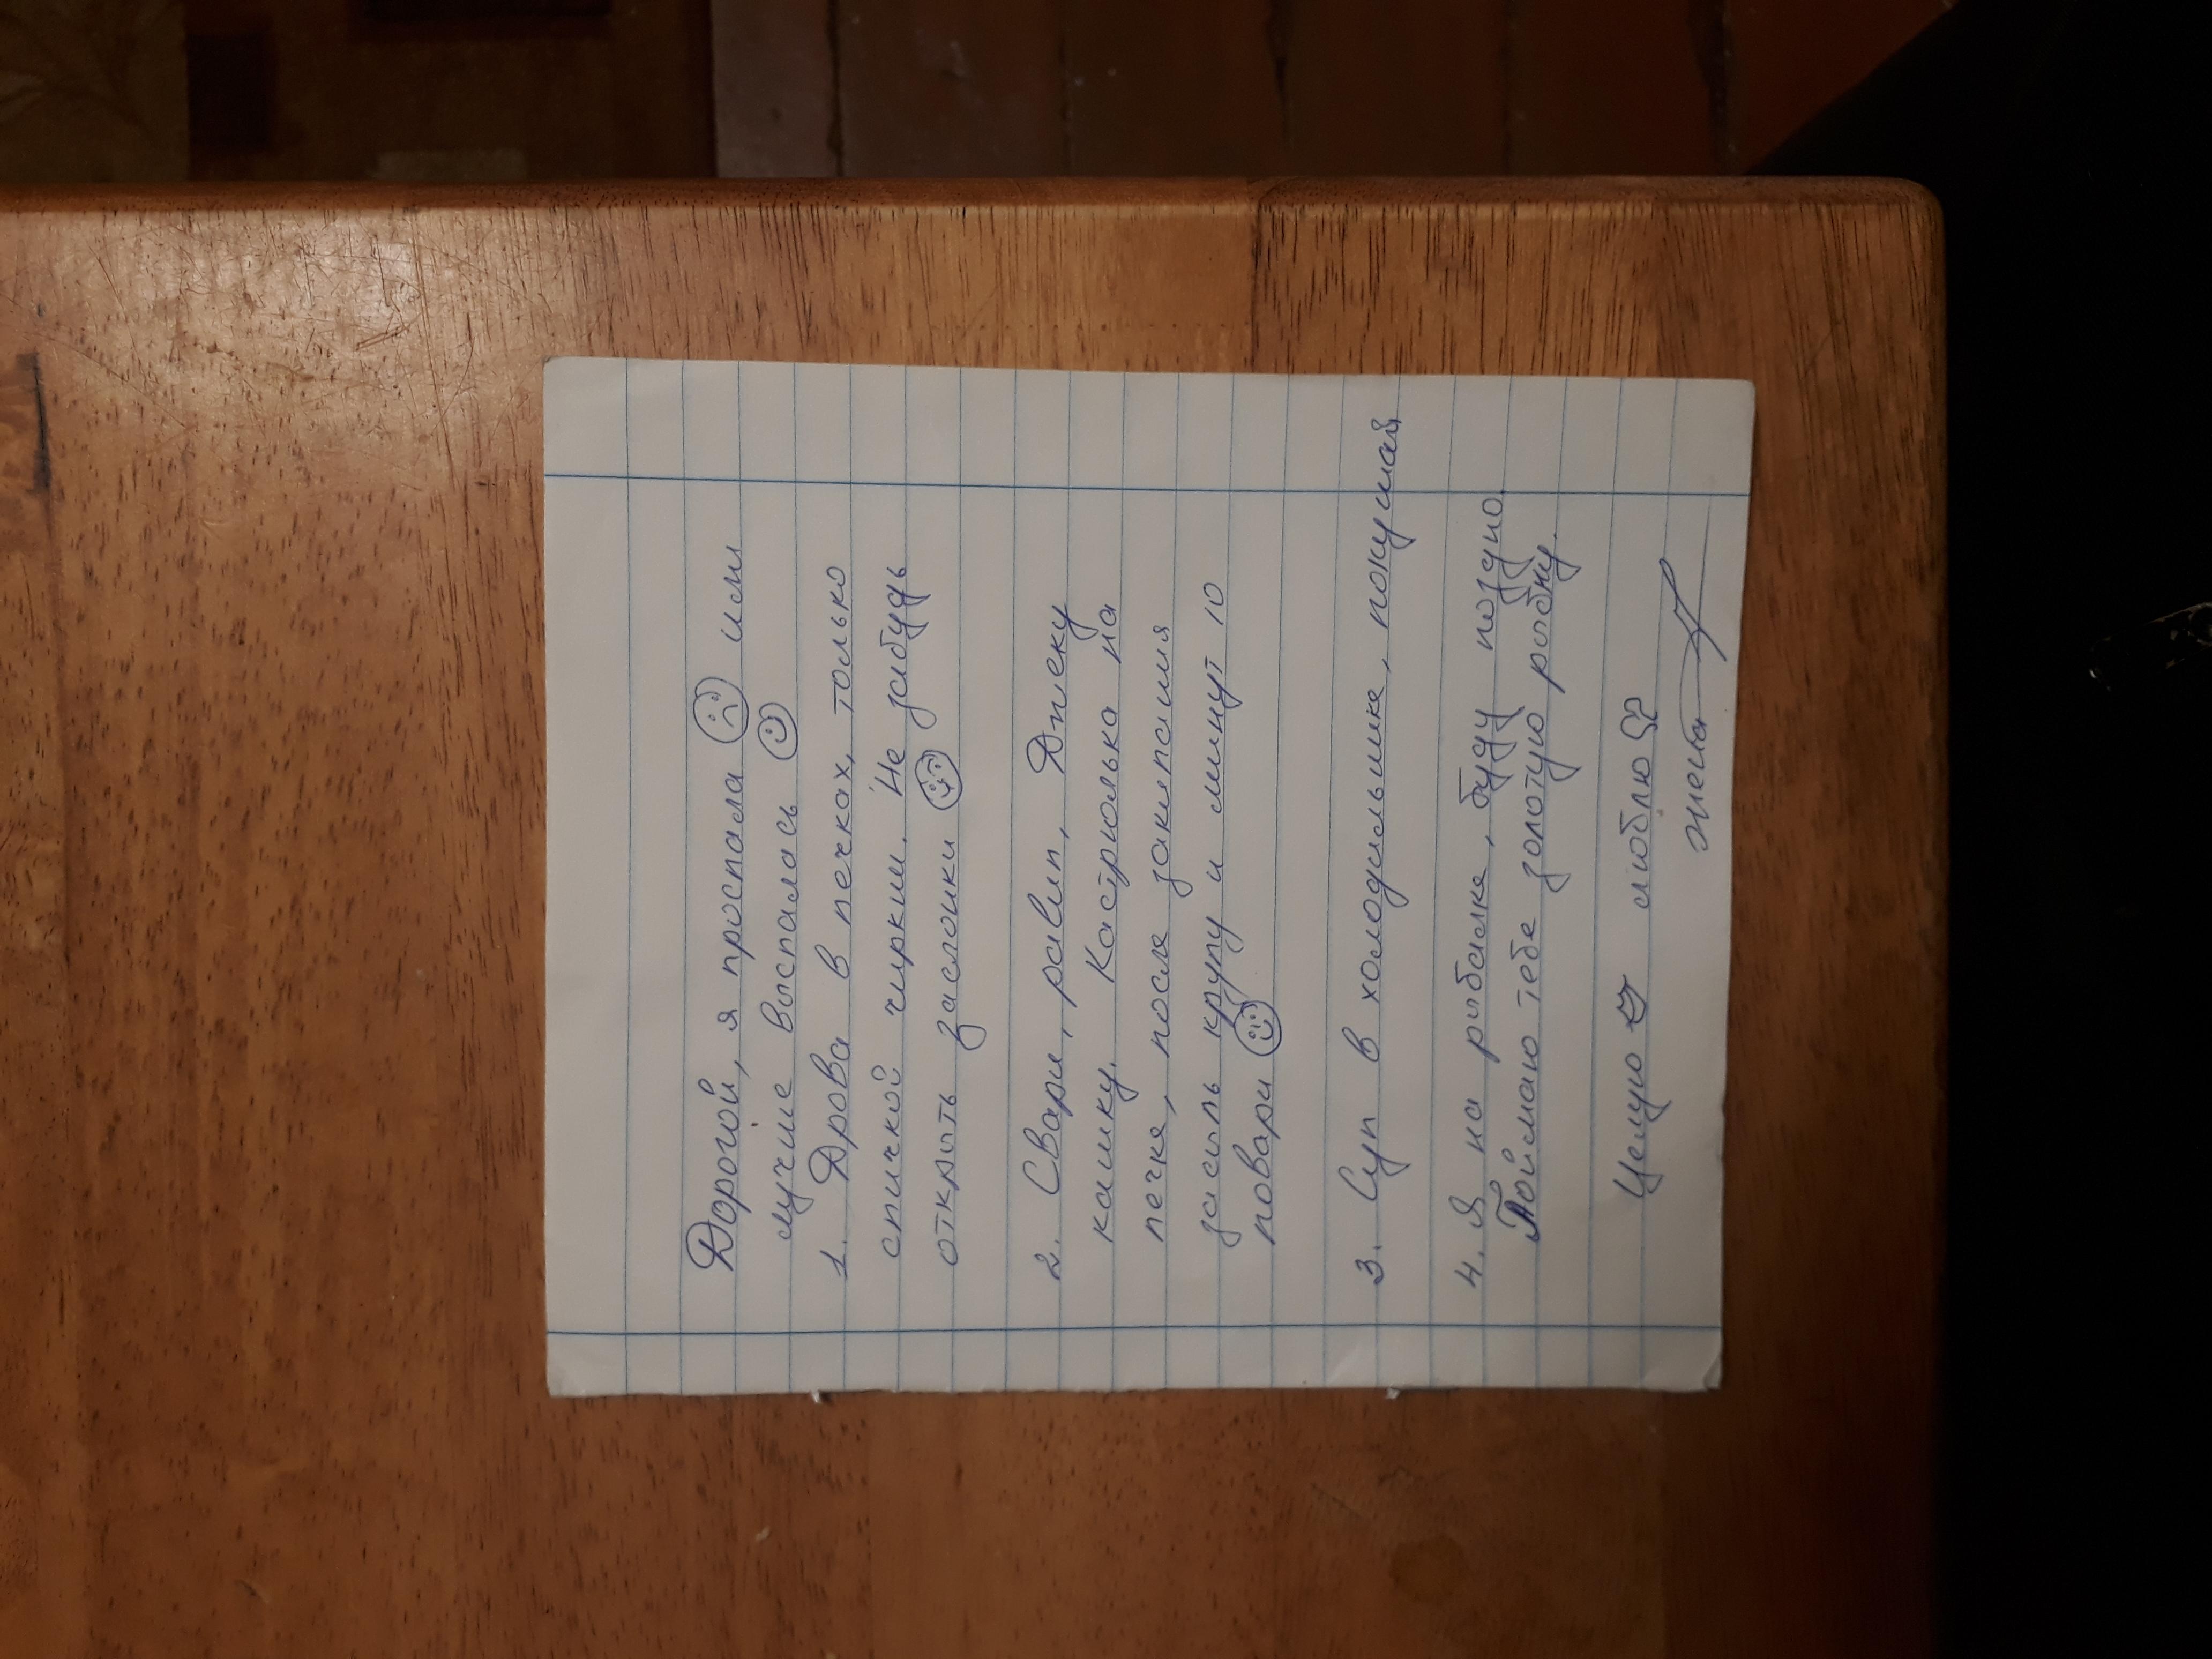 Дорогой, я проспала или
лучше выспалась
1. Дрова в печках, только
спичкой чиркни. Не забудь
открыть заслонки
2. Свари, Джеку
кашку. Кастрюлька на
печке, после закипания
засыпь крупу и минут 10
повари
3. Суп в холодильнике, покушай
4. Я на рыбалке, буду поздно.
Поймаю тебе золотую рыбку.
Целую люблю
жена